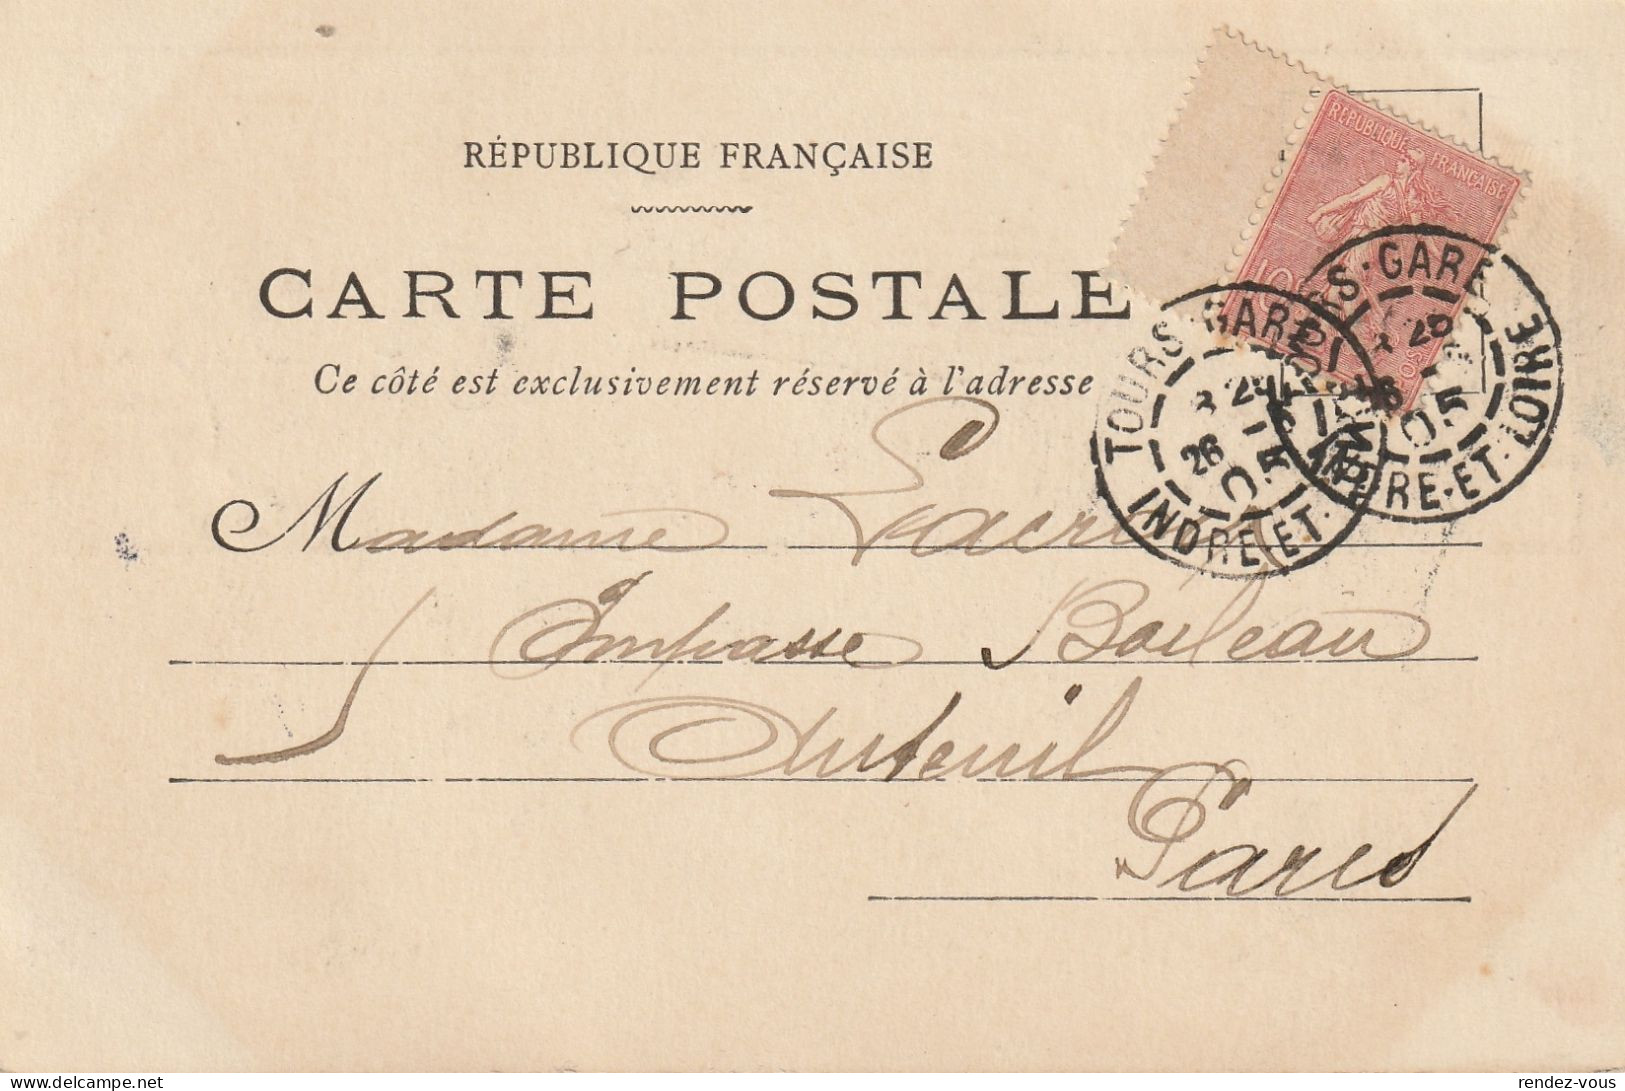 RÉPUBLIQUE FRANÇAISE
CARTE POSTALE
Ce côté est exclusivement réservé à l'adresse
RÉPUBLIQUE FRANÇAISE
10c
TOURS-GARE
INDRE-ET-LOIRE
TOURS-GARE
INDRE-ET-LOIRE
26
05
Madame
5 Impasse Boileau
Auteuil
Paris
delcampe.net
rendez-vous